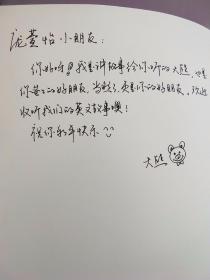 庞萱怡小朋友:
你好呀!我是讲故事给你听的大熊,也是
你爸爸的好朋友,当然了,更是你的好朋友,欢迎
收听我们的英文故事噢!
祝你新年快乐
大熊